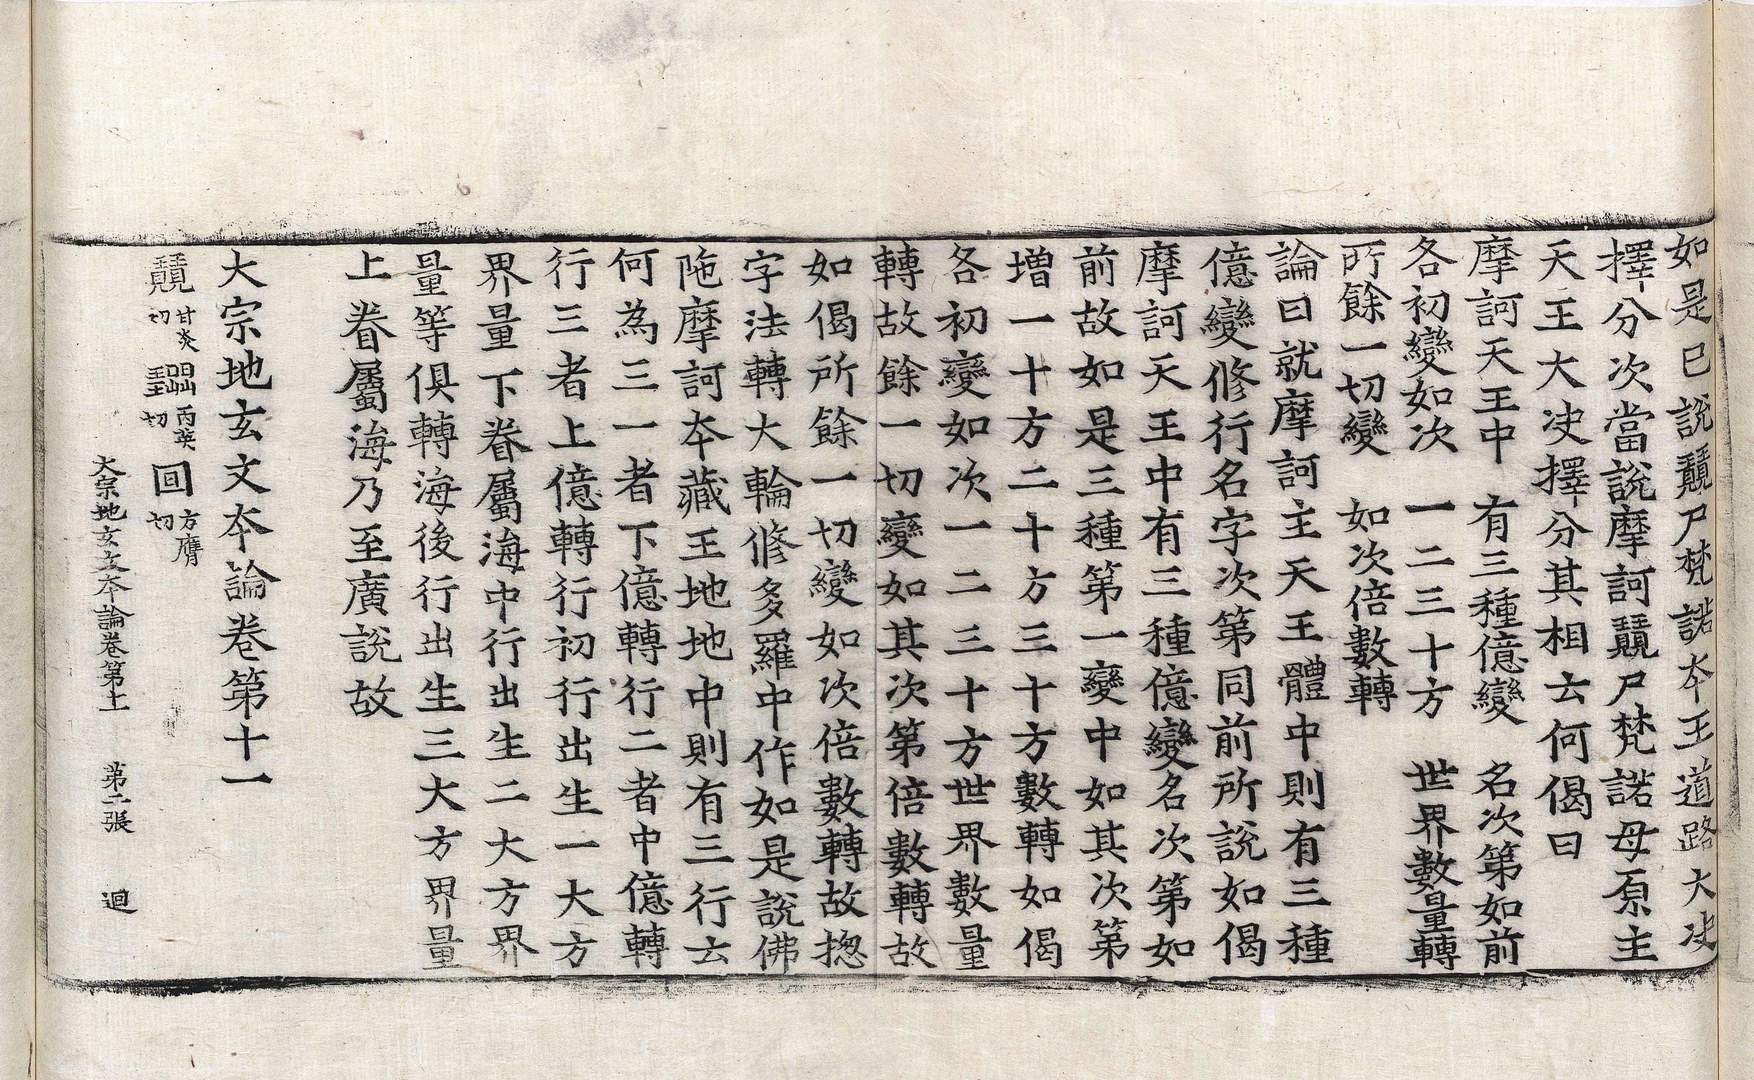 如是已說䚎尸梵諾本王道路大决
擇分次當說摩訶䚎尸梵諾母原主
天王大决擇分其相云何偈曰
摩訶天王中 有三種億變 名次第如前
各初變如次 一二三十方 世界數量轉
所餘一切變 如次倍數轉
論曰就摩訶主天王體中則有三種
億變修行名字次第同前所說如偈
摩訶天王中有三種億變名次第如
前故如是三種第一變中如其次第
增一十方二十方三十方數轉如偈
各初變如次一二三十方世界數量
轉故餘一切變如其次第倍數轉故
如偈所餘一切變如次倍數轉故揔
字法轉大輪修多羅中作如是說佛
陁摩訶本藏王地地中則有三行云
何為三一者下億轉行二者中億轉
行三者上億轉行初行出生一大方
界量下眷屬海中行出生二大方界
量等俱轉海後行出生三大方界量
上眷屬海乃至廣說故
大宗地玄文本論卷第十一
甘炎切 丙英切 囬 方膺切
大宗地玄文本論卷第十一 第二張 迴